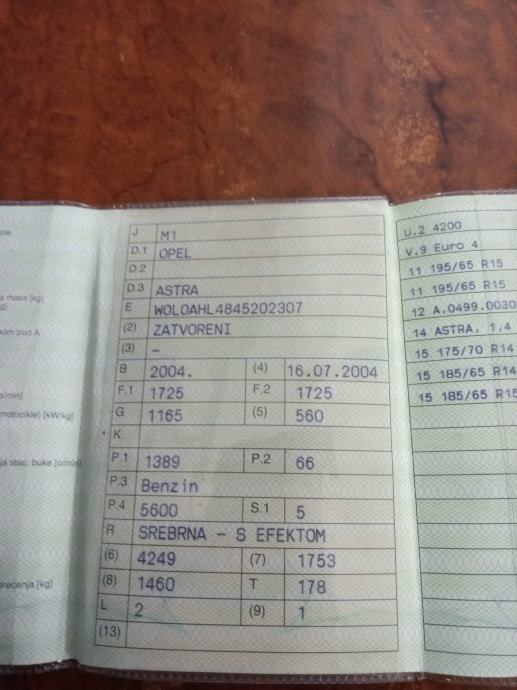 J M1
D.1 OPEL
D.2
D.3 ASTRA
E WOLOAHL4845202307
(2) ZATVORENI
(3) –
B 2004. (4) 16.07.2004
F.1 1725 F.2 1725
G 1165 (5) 560
K
P.1 1389 P.2 66
P.3 Benzin
P.4 5600 S.1 5
R SREBRNA - S EFEKTOM
(6) 4249 (7) 1753
(8) 1460 T 178
L 2 (9) 1
(13)
masa [kg]
kom pod A
motocikle) [kW/kg]
stac. buke [o/min]
[kg]
U.2 4200
V.9 Euro 4
11 195/65 R15
11 195/65 R15
12 A.0499.0030
14 ASTRA, 1,4
15 175/70 R14
15 185/65 R14
15 185/65 R15